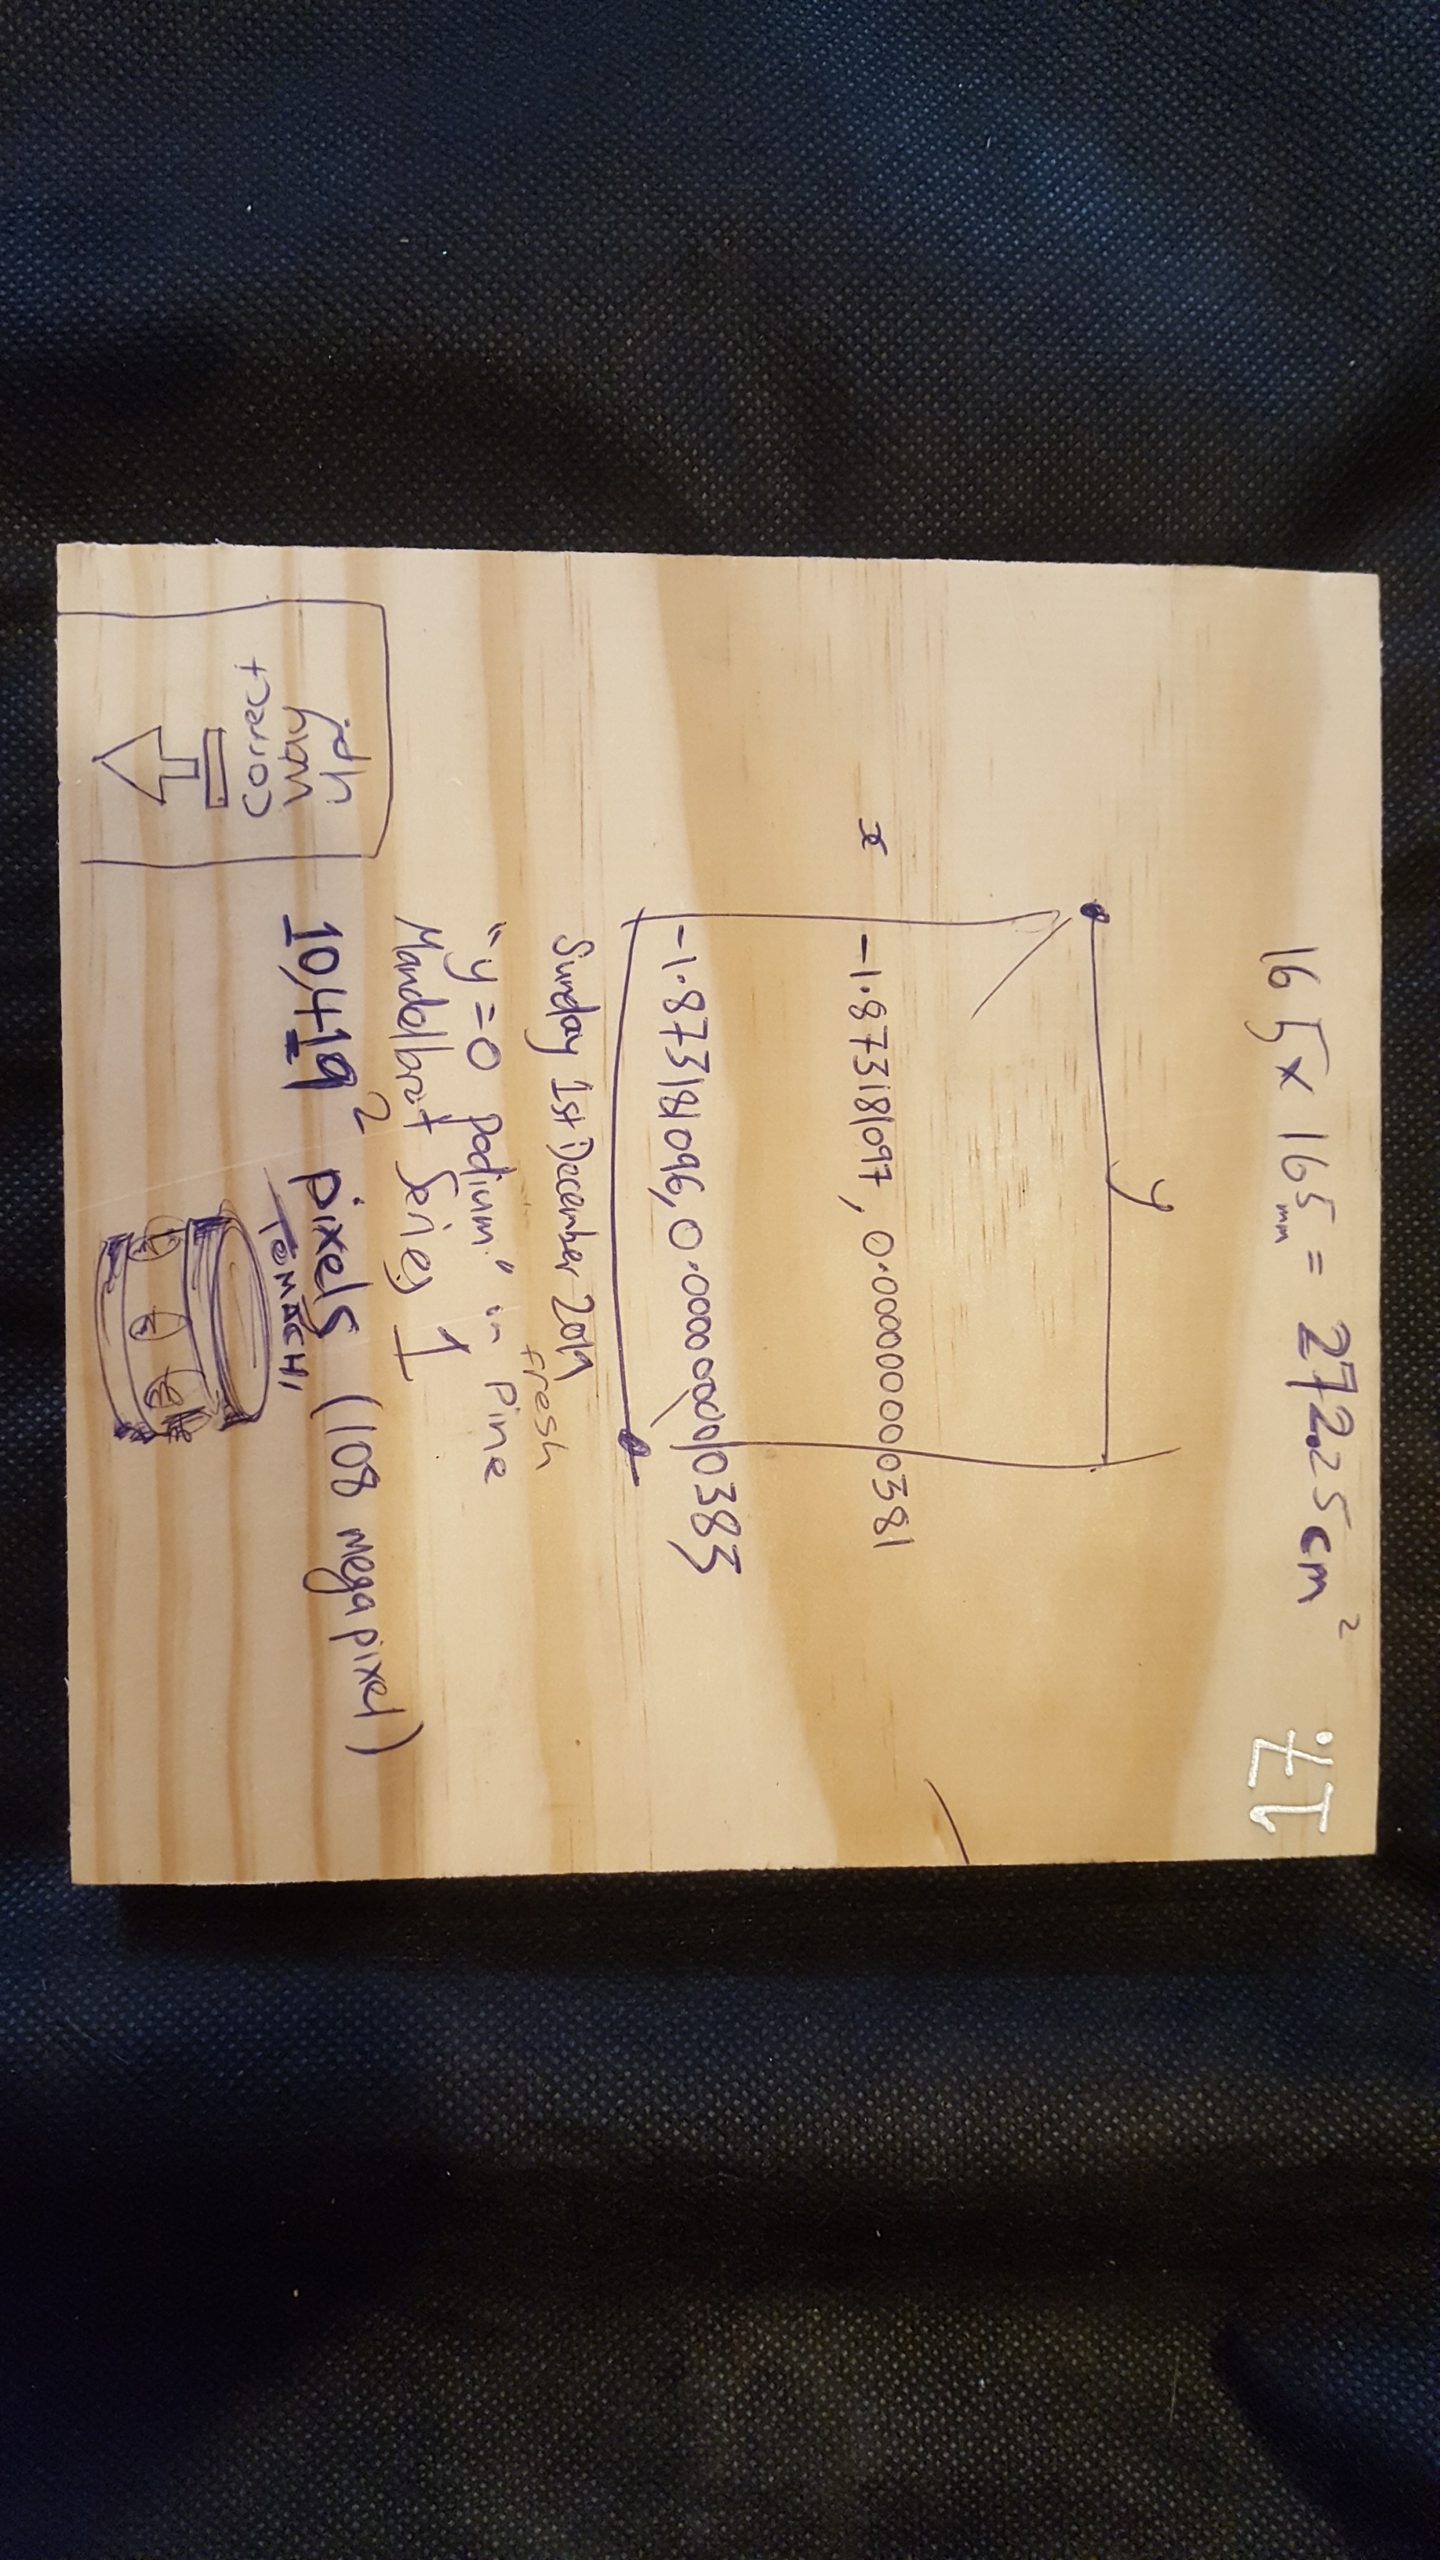 16 5 x 165mm = 272.25cm²
17.
y
x
-1.873181097, 0.00000000000381
-1.873181096, 0.00000000000383
Sunday 1st December 2019
fresh
"y=0 Podium" in Pine
Mandelbrot Series 1
10,419² pixels (108 megapixel)
TOMACHI
Correct
Way
Up.